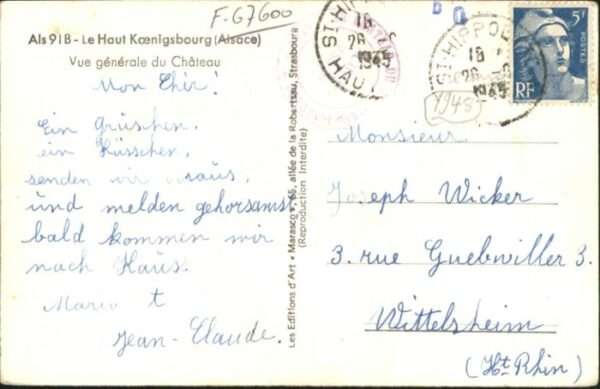 F-G7600
Als 91B - Le Haut Kœnigsbourg (Alsace)
Vue générale du Château
Mon Chér!
Ein Grüschen,
ein Küsschen,
senden wir voraüs,
und melden gehorsamst
bald kommen wir
nach Haüs.
Mario t
Jean-Claude.
Les Editions d'Art « Marasco », 65, allée de la Robertsau, Strasbourg
(Reproduction Interdite)
ST-HIPPOL
18
28
1945
HAUT
ST-HIPPOL
18
28
1945
1945
5F
POSTES
RF
Monsieur
Joseph Wicker
3. rue Guebwiller 3.
Wittelsheim
(Ht Rhin)